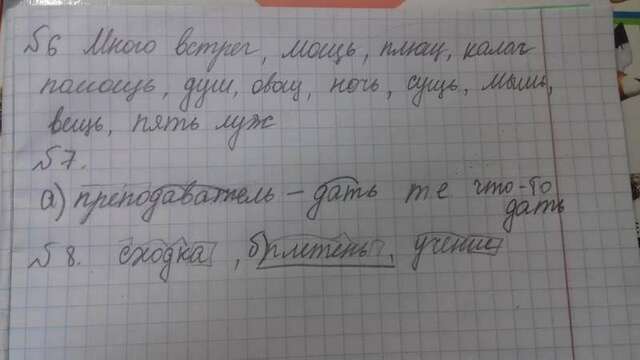 №6 Много встреч, мощь, плющ, калач
помощь, душ, овощ, ночь, сушь, мышь,
вещь, пять луж
№7.
а) преподаватель – дать те что-то
дать
№8. сходка, учение